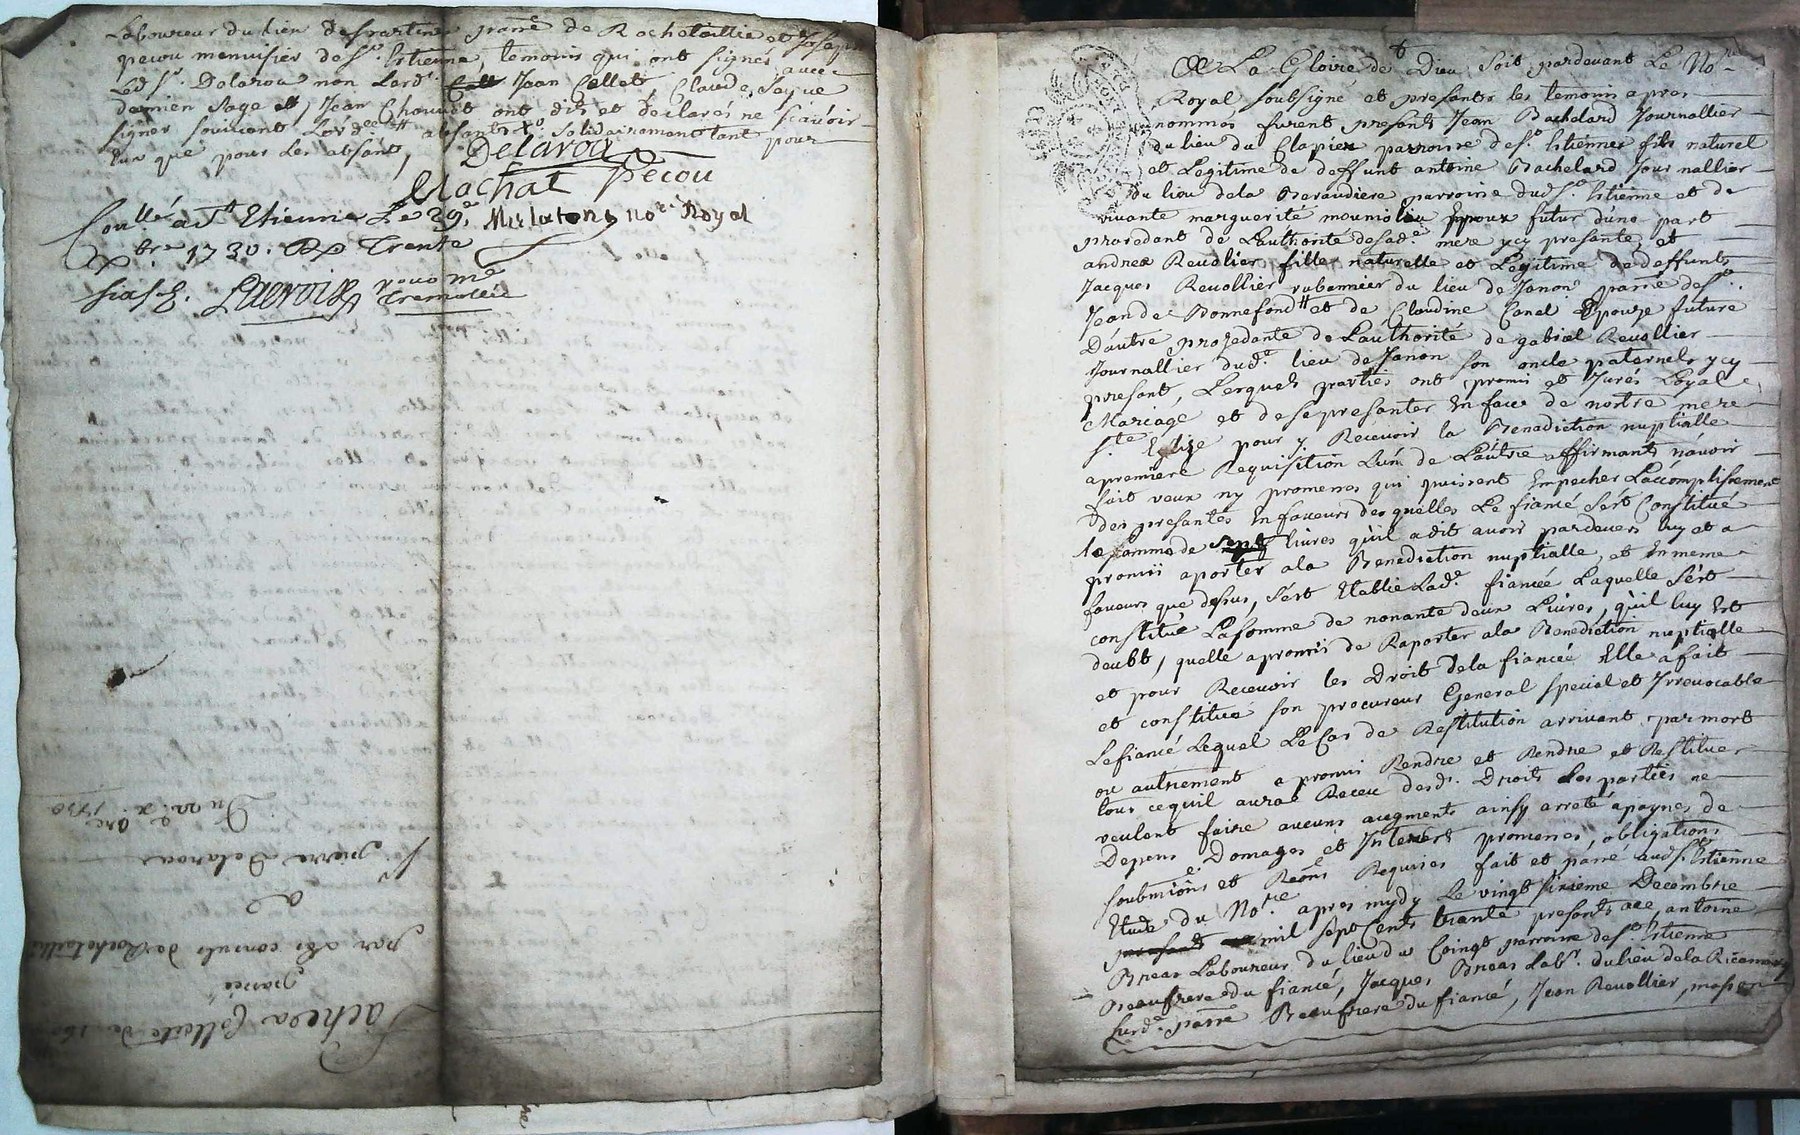 Laboureur du lieu desfartine parre de Rochetaillie et Joseph
pecou menuisier de St. Estienne, temoins qui ont signés avec
Led Sr. Delaroa non Lesd. Jean Collet Claude Sayve
damien Sage et Jean Chouvet ont dit et déclarés ne sçavoir
signer suivant Lord.ce absants solidairemant tant pour
Eux que pour les absants,
Delaroa
Machat Pecou
Con.llé a St Etienne Le 29e Mulaton no.re Royal
Xbre 1730. Trente
Lacroix
Du X.bre 1730
Sr. pierre Delaroa
a
par Les consuls de Rochetaillie
passée
La Gloire de Dieu soit, pardevant Le No.re
Royal soubsigné et presants les temoins apres
nommés furent presents Jean Bachelard Journallier
du lieu du Clapier parroisse de St. Estienne fils naturel
et Legitime de deffunt antoine Bachelard Journallier
du lieu dela Beraudiere parroisse dud. St. Estienne et de
vivante marguerite mounier Epoux futur dune part
procedant de Lauthorité de sad.e mere ycy presante, et
andrea Revolier fille naturelle et Legitime de deffunts
Jacques Revollier rubannier du lieu de Janon parre de St.
Jean de Bonnefond et de Claudine Canel Epouze future
Dautre procedante de Lauthorité de gabriel Revollier
Journallier dud.e lieu de Janon son oncle paternel ycy
presant, Lesquels parties ont promis et Jurés Loyal
Mariage et de se presanter En face de nostre mere
S.te Eglize pour y Recevoir la Benediction nuptialle
a premiere Requisition Lun de Lautre affirmants navoir
fait veux ny promesses qui puissent Empecher Laccomplissement
des presantes En faveurs desquelles Le fiancé s'est Constitué
la somme de sept livres quil a dit avoir pardevers luy et a
promis aporter ala Benediction nuptialle, et En meme
faveurs que dessus, s'est Etablie Lad.e fiancée Laquelle s'est
constitué La somme de nonante deux Livres, quil luy Est
deubt, quelle a promis de Raporter ala Benediction nuptialle
et pour Recevoir les Droit dela fiancée Elle a fait
et constitué son procureur General special et Irrevocable
Le fiancé Lequel Le Cas de Restitution arrivant par mort
ou autrement a promis Rendre et Rendre et Restituer
tous ce quil aura Receu desd. Droits Les parties ne
veulent faire aucuns augments ainsy arreté apaynes de
Depens Domages et Interest promesses, obligations
soubmions et Reons Requises fait et passé aud St. Estienne
Etude du No.re apres mydy Le vingt sixieme Decembre
mil sept Cents trante presents antoine
Breas Laboureur du lieu du Coingt parroisse de St. Estienne
Beaufrere du fiancé, Jacques Breas Lab.r du lieu dela Ricamary
susd.e parre Beaufrere du fiancé, Jean Revollier, masson